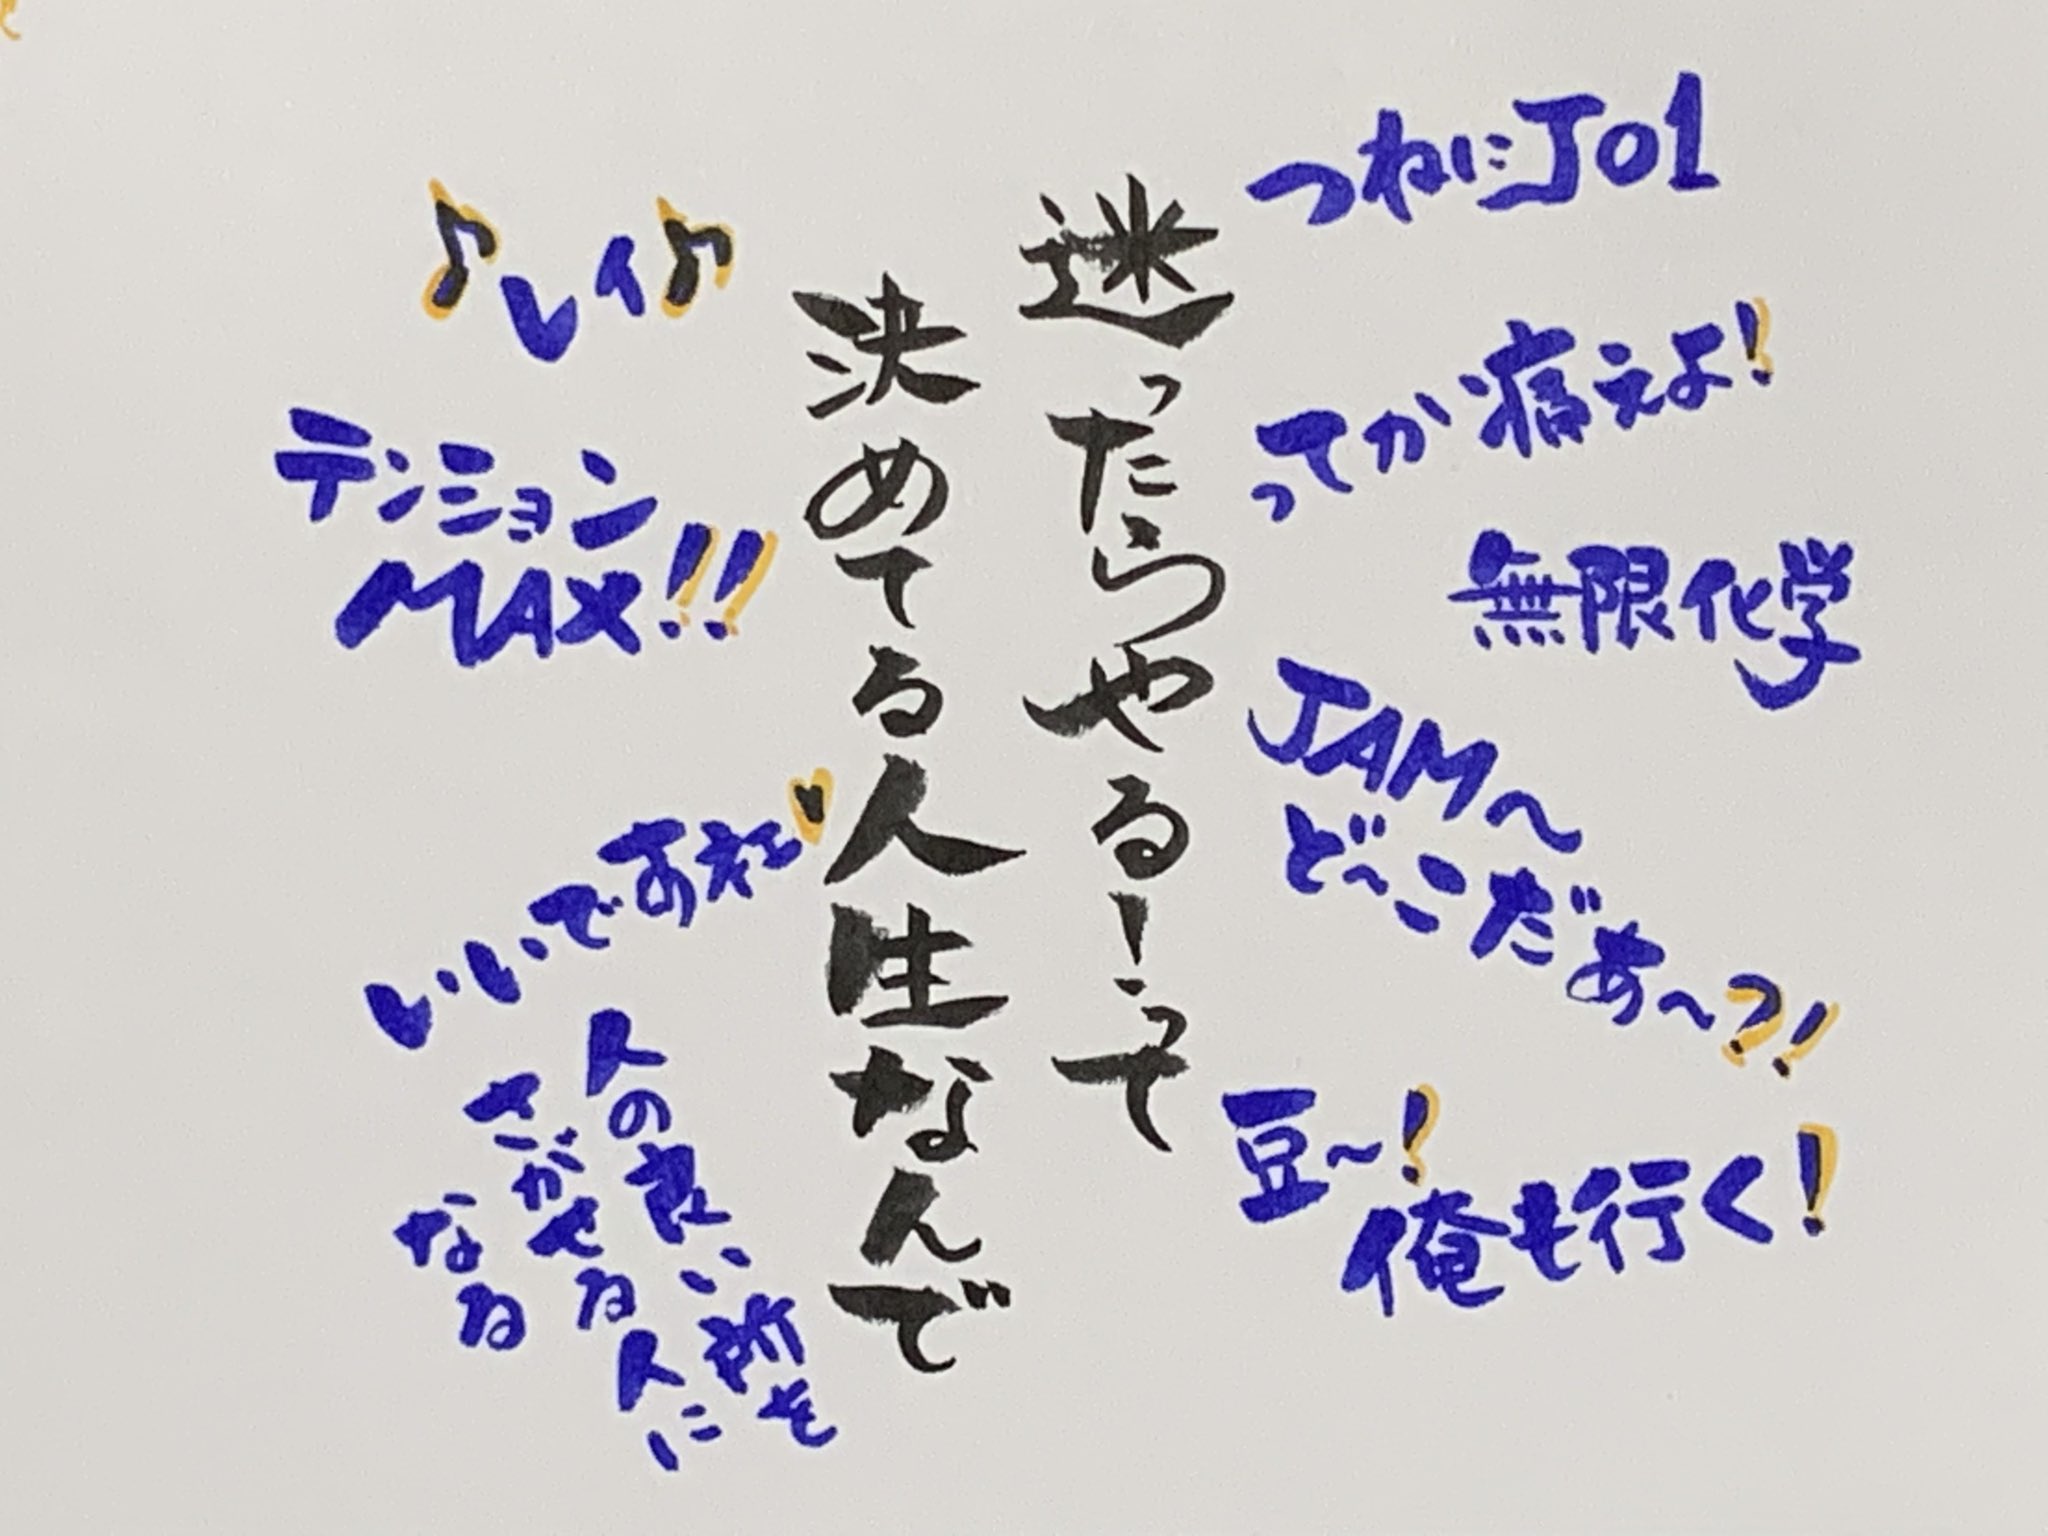 つねにJO1
ってか痛えよ!
無限化学
JAM〜
ど〜こだぁ〜?!
豆〜!
俺も行く!
迷ったらやる!って
決めてる人生なんで
♪レイ♪
テンション
MAX!!
いいですねェ♥
人の良い所を
さがせる人に
なる